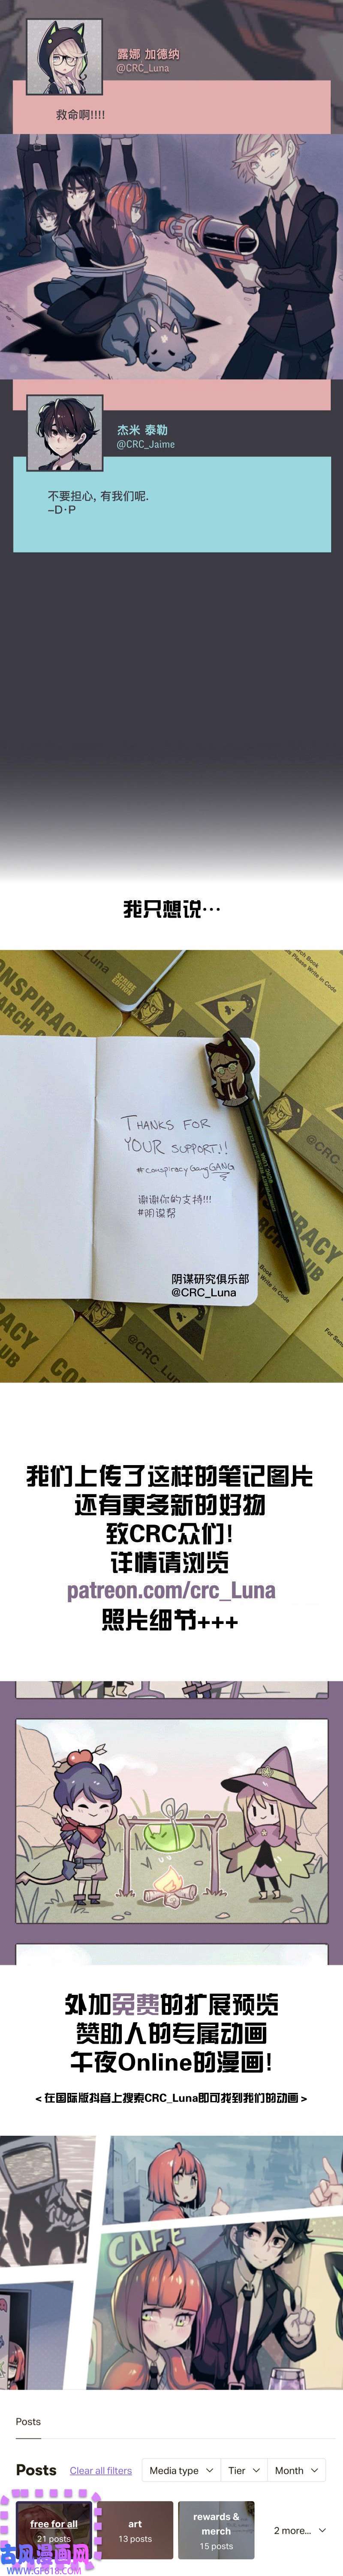 露娜 加德纳
@CRC_Luna
救命啊!!!!
杰米 泰勒
@CRC_Jaime
不要担心, 有我们呢.
–D·P
我只想说…
THANKS FOR
YOUR SUPPORT!!
#conspiracyGangGANG
谢谢你的支持!!!
#阴谋帮
阴谋研究俱乐部
@CRC_Luna
我们上传了这样的笔记图片
还有更多新的好物
致CRC众们!
详情请浏览
patreon.com/crc_Luna
照片细节+++
外加免费的扩展预览
赞助人的专属动画
午夜Online的漫画!
<在国际版抖音上搜索CRC_Luna即可找到我们的动画>
CAFE
Posts
Posts
Clear all filters
Media type
Tier
Month
free for all
21 posts
art
13 posts
rewards &
merch
15 posts
2 more...
古风漫画网
WWW.GF818.COM